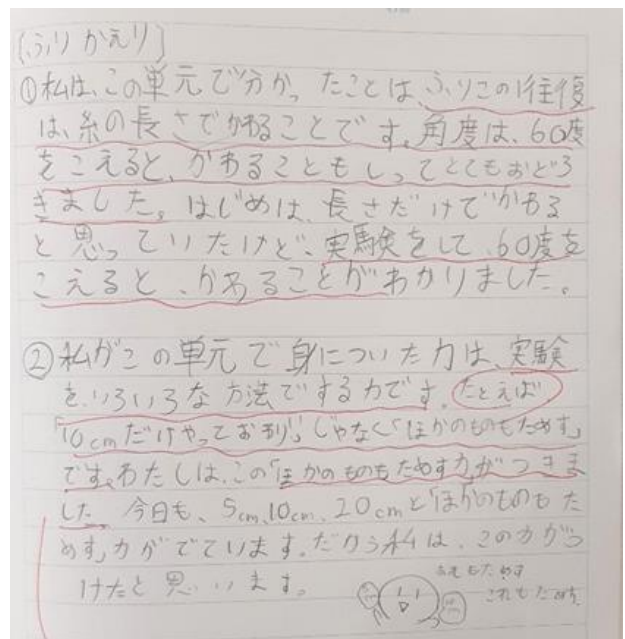 [ふりかえり]
①私は、この単元で分かったことは、ふりこの1往復
は、糸の長さでかわることです。角度は、60度
をこえると、かわることもしってとてもおどろ
きました。はじめは、長さだけでかわる
と思っていたけど、実験をして、60度を
こえると、かわることがわかりました。
②私がこの単元で身についた力は、実験
を、いろいろな方法でする力です。たとえば、
「10cmだけやっておわり」じゃなく「ほかのものもためす」
です。わたしは、この「ほかのものもためす力」がつきま
した。今日も、5cm、10cm、20cmと「ほかのものもた
めす」力がでています。だから私は、この力がつ
けたと思います。
あれもためす
これもためす